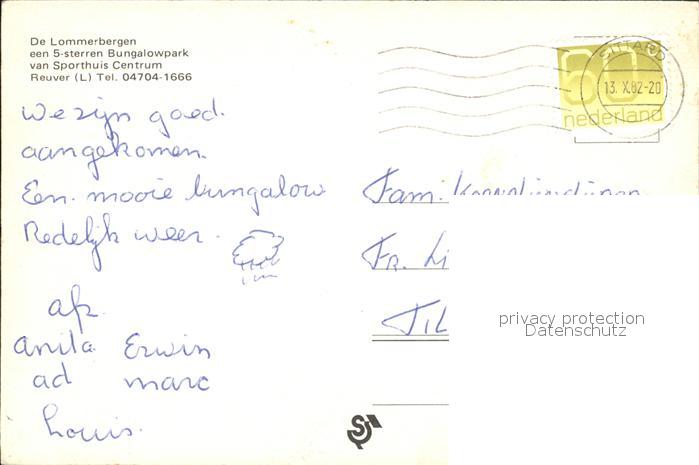 De Lommerbergen
een 5-sterren Bungalowpark
van Sporthuis Centrum
Reuver (L) Tel. 04704-1666
We zijn goed.
aangekomen.
Een mooie bungalow
Redelijk weer.
afz.
anita Erwin
ad marc
Louis.
SITTARD
13. X.82-20
60
nederland
Fam.
Fr. Li
TIL
privacy protection
Datenschutz